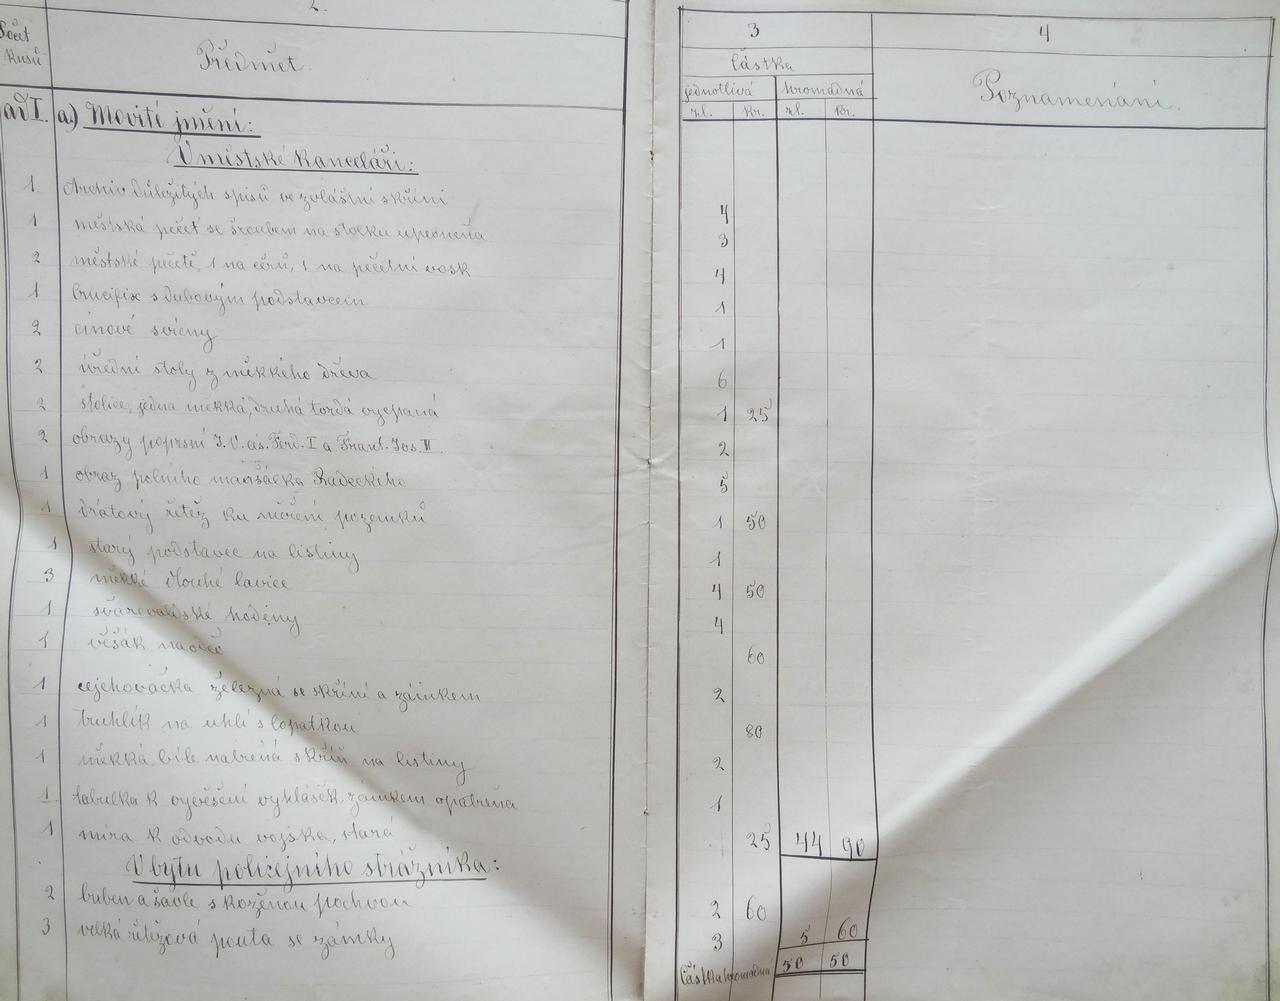 2.
3
4
Počet kusů
Předmět.
částka
Poznamenání.
jednotlivá
hromadná
zl.
kr.
zl.
kr.
ad I. a.) Movité jmění:
V městské kanceláři:
1. Archiv důležitých spisů ve zvláštní skříni 4
1 městská pečeť se šroubem na stolku upevněna 3
2 městské pečetě, 1 na černo, 1 na pečetní vosk 4
1 Crucifix s dubovým podstavcem 1
2 cínové svícny 1
2 úřední stoly z měkkého dřeva 6
2 stolice, jedna měkká, druhá tvrdá vycpaná 1 25
2 obrazy poprsní J. V. cís. Ferd. I a Frant. Jos. II. 2
1 obraz polního maršálka Radeckého 5
1 drátový řetěz ku měření pozemků 1 50
1 starý podstavec na listiny 1
3 měkké dlouhé lavice 4 50
1 švarcvaldské hodiny 4
1 věšák na oděv 60
1 cejchovačka železná se skříní a zámkem 2
1 truhlík na uhlí s lopatkou 80
1 měkká, bíle natřená skříň na listiny 2
1. tabulka k vyvěšení vyhlášek, zámkem opatřena 1
1 míra k odvodu vojska, stará 25 44 90
V bytu policejního strážníka:
2 buben a šavle s koženou pochvou 2 60
3 velká řetězová pouta se zámky 3 5 60
Částka hromadná 50 50